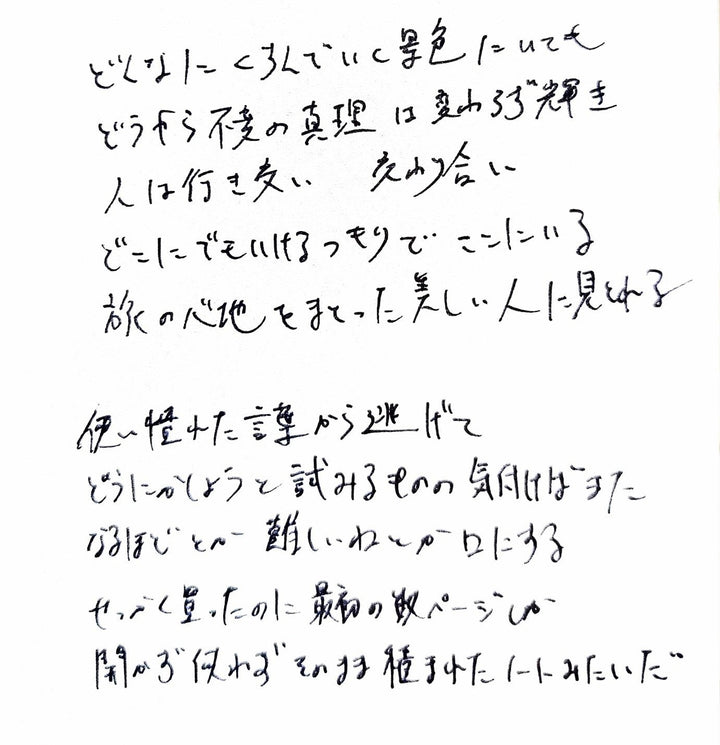 どんなにくすんでいく景色にいても
どうやら不変の真理は変わらず輝き
人は行き交い 交わり合い
どこにでもいけるつもりでここにいる
旅の心地をまとった美しい人に見とれる
使い慣れた言葉から逃げて
どうにかしようと試みるものの気付けばまた
なるほどとか難しいねとか口にする
せっかく買ったのに最初の数ページしか
開かず使わずそのまま積まれたノートみたいだ